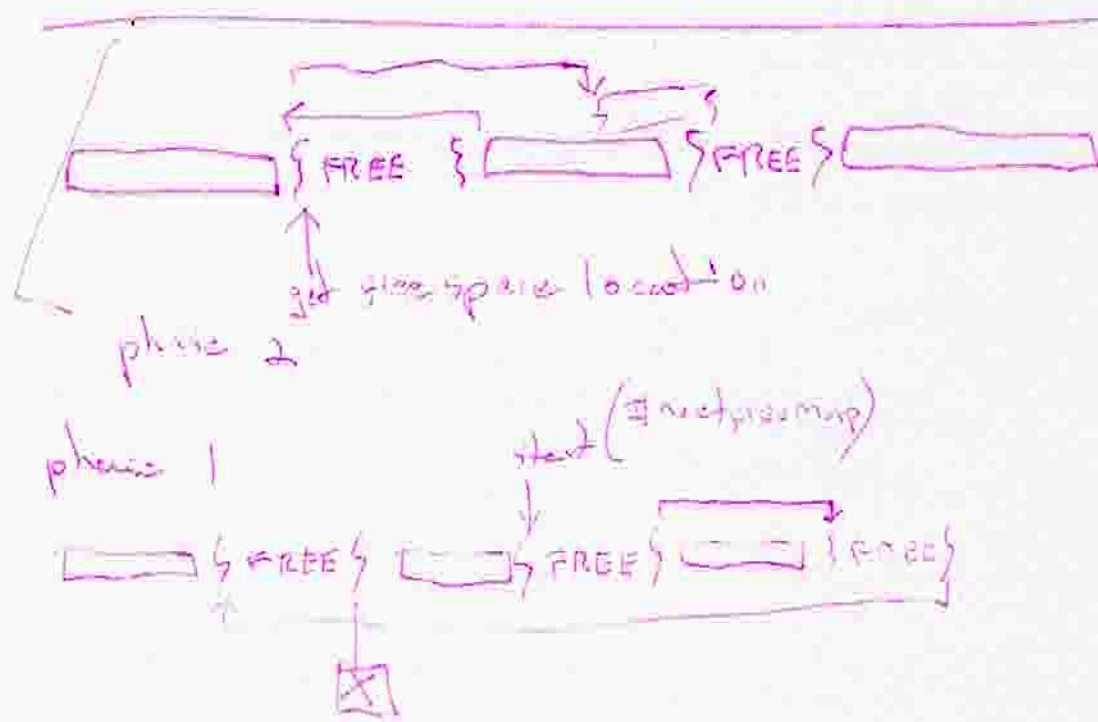 FREE FREE
get free space location
phase 2
phase 1
start(
FREE FREE FREE